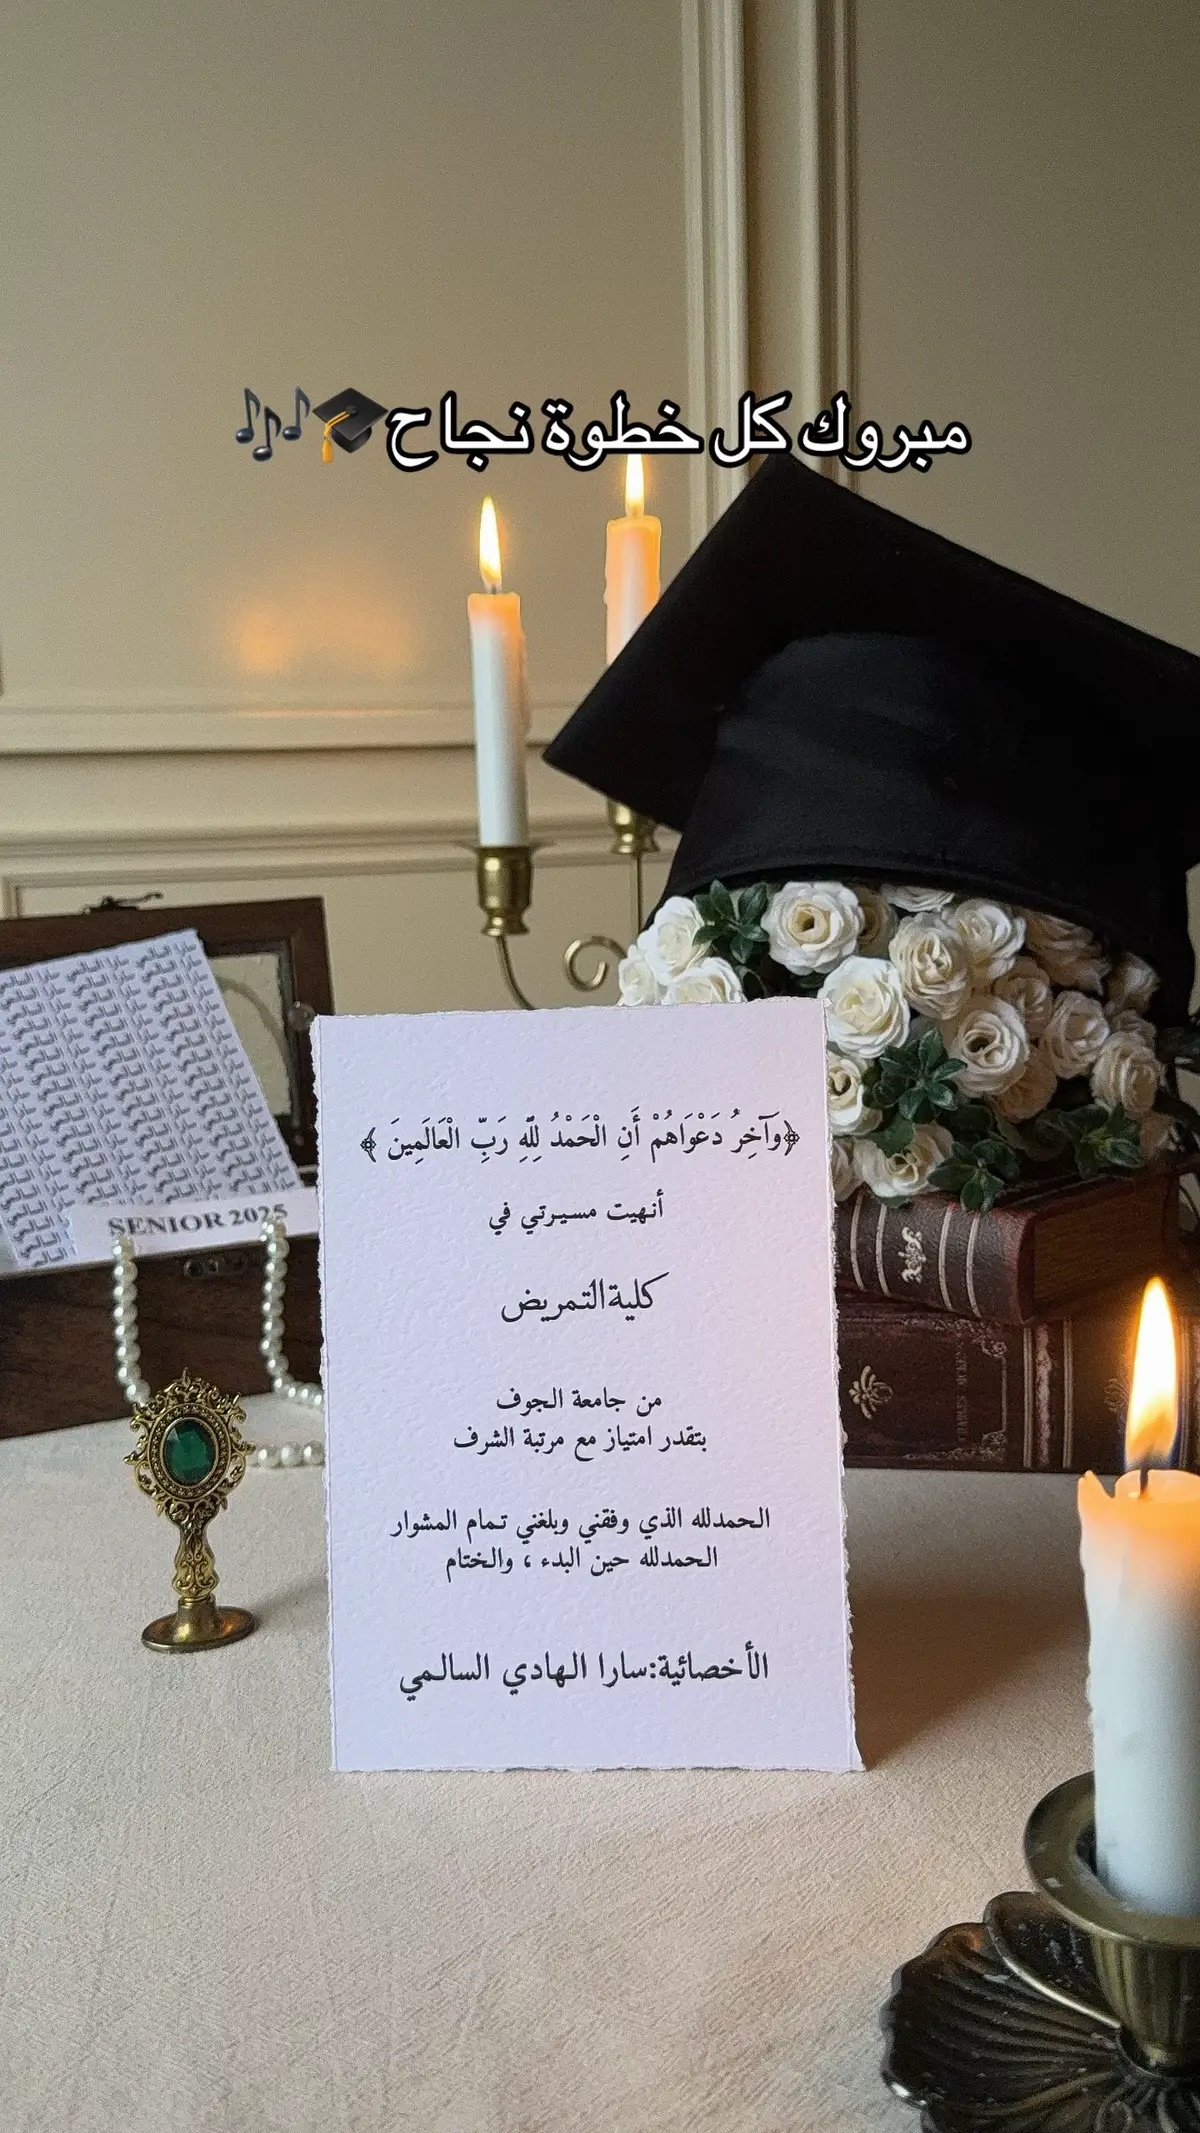 مبروك كل خطوة نجاح🎓🎶
SENIOR 2025
﴿وَآخِرُ دَعْوَاهُمْ أَنِ الْحَمْدُ لِلَّهِ رَبِّ الْعَالَمِينَ ﴾
أنهيت مسيرتي في
كلية التمريض
من جامعة الجوف
بتقدر امتياز مع مرتبة الشرف
الحمدلله الذي وفقني وبلغني تمام المشوار
الحمدلله حين البدء ، والختام
الأخصائية:سارا الهادي السالمي